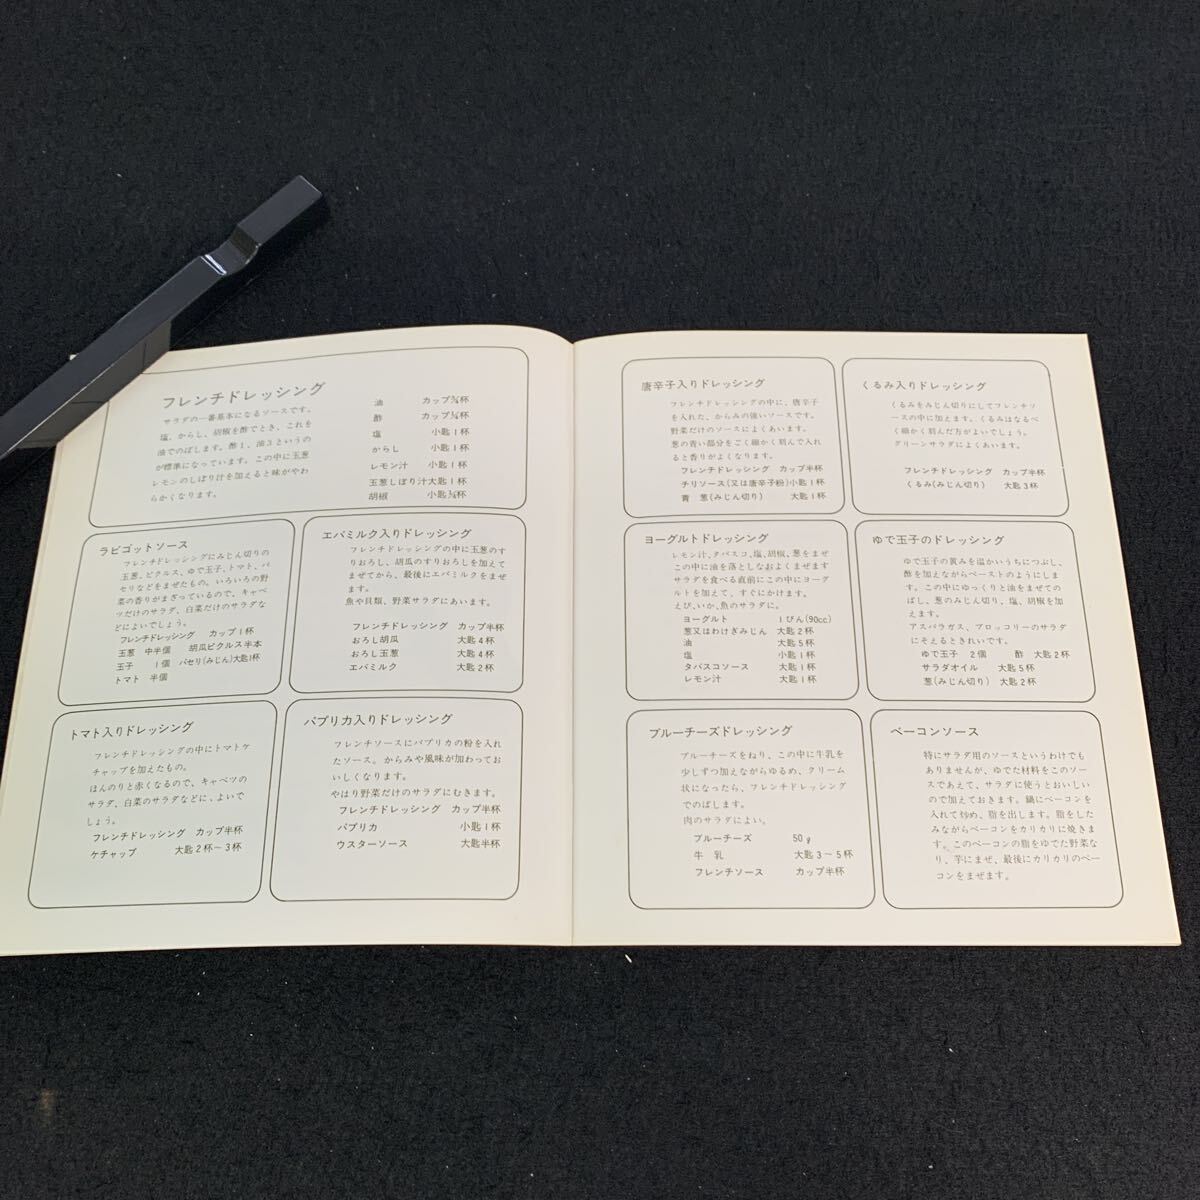 フレンチドレッシング
サラダの一番基本になるソースです。
塩、からし、胡椒を酢でとき、これを
油でのばします。酢1、油3というの
が標準になっています。この中に玉葱
レモンのしぼり汁を加えると味がやわ
らかくなります。
油 カップ¾杯
酢 カップ¼杯
塩 小匙1杯
からし 小匙1杯
レモン汁 小匙1杯
玉葱しぼり汁大匙1杯
胡椒 小匙¼杯
ラビゴットソース
フレンチドレッシングにみじん切りの
玉葱、ピクルス、ゆで玉子、トマト、パ
セリなどをまぜたもの。いろいろの野
菜の香りがまざっているので、キャベ
ツだけのサラダ、白菜だけのサラダな
どによいでしょう。
フレンチドレッシング カップ1杯
玉葱 中半個 胡瓜ピクルス半本
玉子 1個 パセリ(みじん)大匙1杯
トマト 半個
エバミルク入りドレッシング
フレンチドレッシングの中に玉葱のす
りおろし、胡瓜のすりおろしを加えて
まぜてから、最後にエバミルクをまぜ
ます。
魚や貝類、野菜サラダにあいます。
フレンチドレッシング カップ半杯
おろし胡瓜 大匙4杯
おろし玉葱 大匙4杯
エバミルク 大匙2杯
トマト入りドレッシング
フレンチドレッシングの中にトマトケ
チャップを加えたもの。
ほんのりと赤くなるので、キャベツの
サラダ、白菜のサラダなどに、よいで
しょう。
フレンチドレッシング カップ半杯
ケチャップ 大匙2杯〜3杯
パプリカ入りドレッシング
フレンチソースにパプリカの粉を入れ
たソース。からみや風味が加わってお
いしくなります。
やはり野菜だけのサラダにむきます。
フレンチドレッシング カップ半杯
パプリカ 小匙1杯
ウスターソース 大匙半杯
唐辛子入りドレッシング
フレンチドレッシングの中に、唐辛子
を入れた、からみの強いソースです。
野菜だけのソースによくあいます。
葱の青い部分をごく細かく刻んで入れ
ると香りがよくなります。
フレンチドレッシング カップ半杯
チリソース(又は唐辛子粉)小匙1杯
青 葱(みじん切り) 大匙1杯
くるみ入りドレッシング
くるみをみじん切りにしてフレンチソ
ースの中に加えます。くるみはなるべ
く細かく刻んだ方がよいでしょう。
グリーンサラダによくあいます。
フレンチドレッシング カップ半杯
くるみ(みじん切り) 大匙3杯
ヨーグルトドレッシング
レモン汁、タバスコ、塩、胡椒、葱をまぜ
この中に油を落としなおよくまぜます
サラダを食べる直前にこの中にヨーグ
ルトを加えて、すぐにかけます。
えび、いか、魚のサラダに。
ヨーグルト 1びん(90cc)
葱又はわけぎみじん 大匙2杯
油 大匙5杯
塩 小匙1杯
タバスコソース 大匙1杯
レモン汁 大匙1杯
ゆで玉子のドレッシング
ゆで玉子の黄みを温かいうちにつぶし、
酢を加えながらペーストのようにしま
す。この中にゆっくりと油をまぜての
ばし、葱のみじん切り、塩、胡椒を加
えます。
アスパラガス、ブロッコリーのサラダ
にそえるときれいです。
ゆで玉子 2個 酢 大匙2杯
サラダオイル 大匙5杯
葱(みじん切り) 大匙2杯
ブルーチーズドレッシング
ブルーチーズをねり、この中に牛乳を
少しずつ加えながらゆるめ、クリーム
状になったら、フレンチドレッシング
でのばします。
肉のサラダによい。
ブルーチーズ 50g
牛 乳 大匙3〜5杯
フレンチソース カップ半杯
ベーコンソース
特にサラダ用のソースというわけでも
ありませんが、ゆでた材料をこのソー
スであえて、サラダに使うとおいしい
ので加えておきます。鍋にベーコンを
入れて炒め、脂を出します。脂をした
みながらベーコンをカリカリに焼きま
す。このベーコンの脂をゆでた野菜な
り、芋にまぜ、最後にカリカリのベー
コンをまぜます。